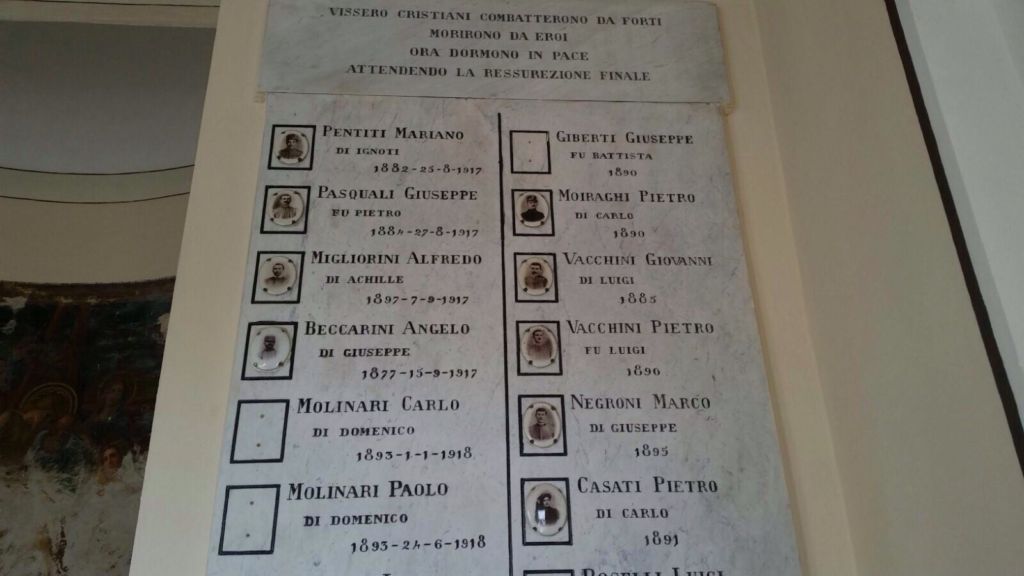 VISSERO CRISTIANI COMBATTERONO DA FORTI
MORIRONO DA EROI
ORA DORMONO IN PACE
ATTENDENDO LA RESSUREZIONE FINALE
PENTITI MARIANO
DI IGNOTI
1882-25-8-1917
PASQUALI GIUSEPPE
FU PIETRO
1884-27-8-1917
MIGLIORINI ALFREDO
DI ACHILLE
1897-7-9-1917
BECCARINI ANGELO
DI GIUSEPPE
1877-15-9-1917
MOLINARI CARLO
DI DOMENICO
1893-1-1-1918
MOLINARI PAOLO
DI DOMENICO
1893-24-6-1918
GIBERTI GIUSEPPE
FU BATTISTA
1890
MOIRAGHI PIETRO
DI CARLO
1890
VACCHINI GIOVANNI
DI LUIGI
1885
VACCHINI PIETRO
FU LUIGI
1890
NEGRONI MARCO
DI GIUSEPPE
1895
CASATI PIETRO
DI CARLO
1891
ROSELLI LUIGI